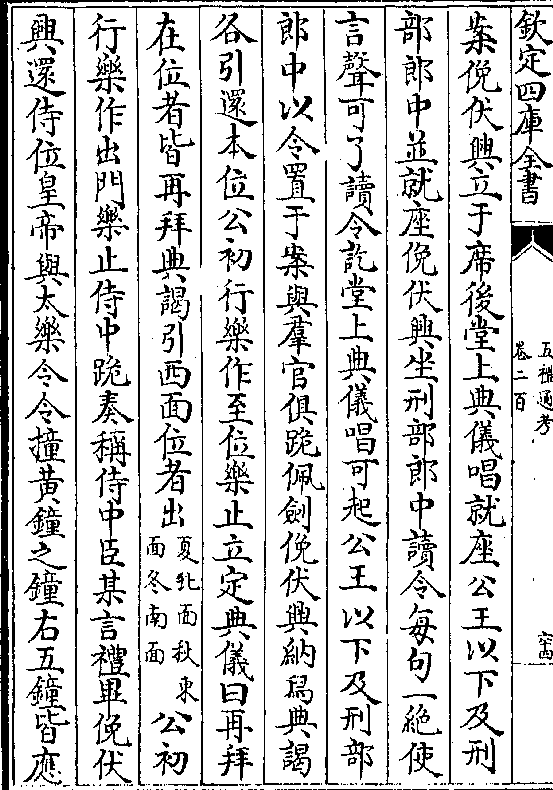 欽定四庫全書
五禮通考
卷二百
案俛伏興立于席後堂上典儀唱就座公王以下及刑
部郎中並就座俛伏興坐刑部郎中讀令每句一絶使
言聲可了讀令訖堂上典儀唱可起公王以下及刑部
郎中以令置于案與羣官俱跪佩劍俛伏興納舄典謁
各引還本位公初行樂作至位樂止立定典儀曰再拜
在位者皆再拜典謁引西面位者出夏北面秋東面冬南面公初
行樂作出門樂止侍中跪奏稱侍中臣某言禮畢俛伏
興還侍位皇帝興太樂令令撞黃鐘之鐘右五鐘皆應